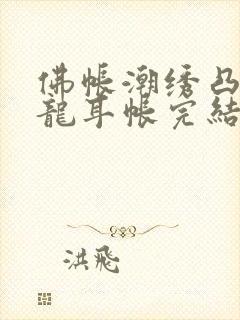 佛帐潮绣凸
龍耳帐完結
洪飛